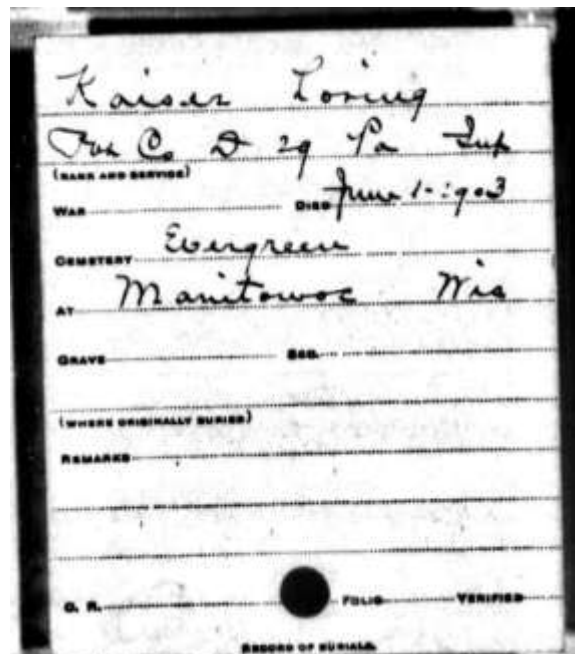 Kaiser Loring
Pvt Co D 29 Pa Inf
(RANK AND SERVICE)
WAR DIED June 1-1903
CEMETERY Evergreen
AT Manitowoc Wis
GRAVE SEC.
(WHERE ORIGINALLY BURIED)
REMARKS
O. R. FOLIO VERIFIED
RECORD OF BURIALS.